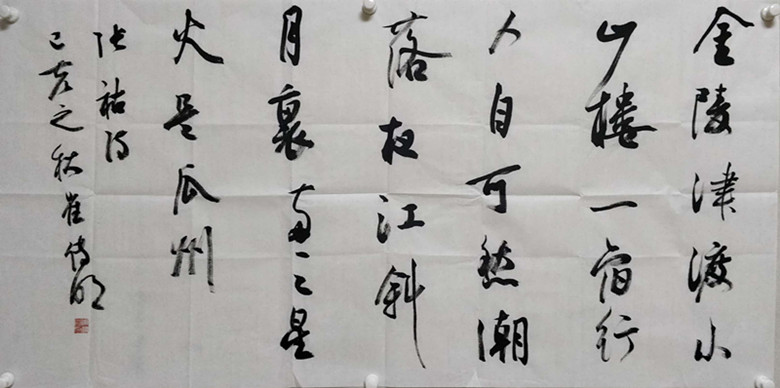 金陵津渡小
山楼一宿行
人自可愁潮
落夜江斜
月裏两三星
火是瓜州
张祜诗
己亥之秋崔传明